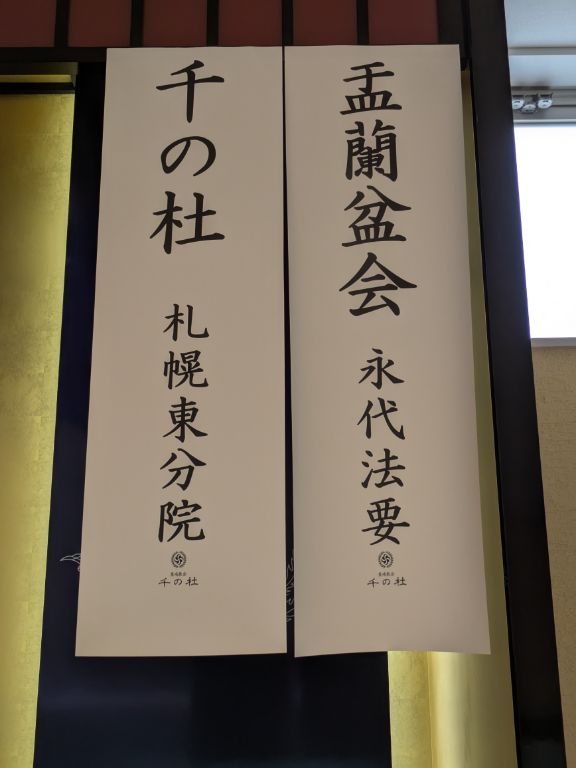 盂蘭盆会 永代法要
千の杜
千の杜 札幌東分院
千の杜